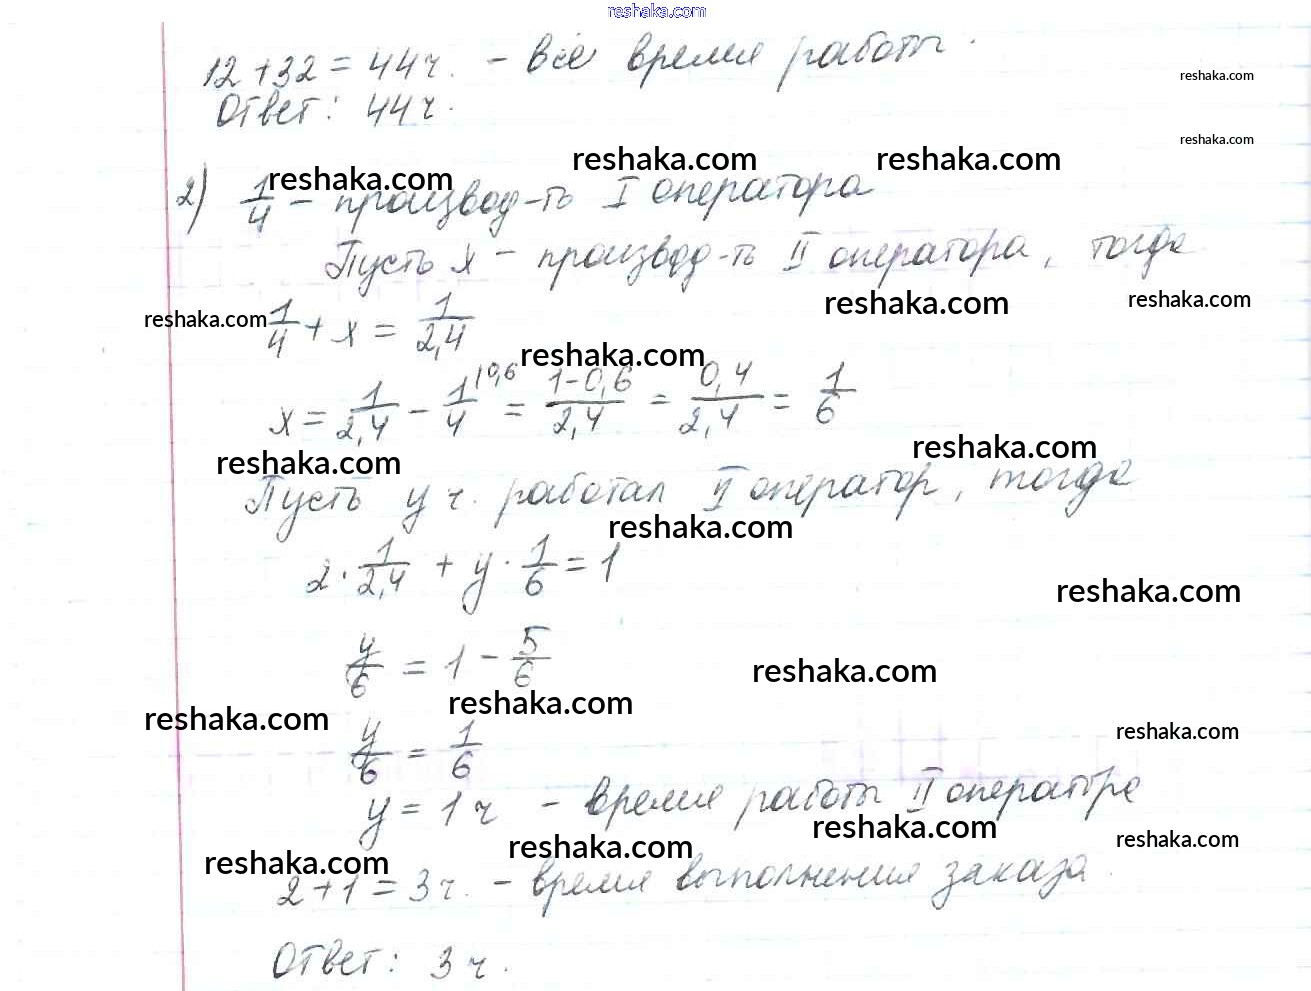 reshaka.com
12 + 32 = 44 ч. - всё время работы.
reshaka.com
Ответ: 44 ч.
reshaka.com
reshaka.com reshaka.com
2) 1/4 - производ-ть I оператора
reshaka.com
Пусть x - производ-ть II оператора, тогда
reshaka.com reshaka.com
reshaka.com
1/4 + x = 1/2,4
reshaka.com
x = 1/2,4 - 1/4 |0,6 = 1-0,6/2,4 = 0,4/2,4 = 1/6
reshaka.com
reshaka.com
Пусть y ч. работал II оператор, тогда
reshaka.com
2 · 1/2,4 + y · 1/6 = 1
reshaka.com
y/6 = 1 - 5/6
reshaka.com
reshaka.com
reshaka.com
reshaka.com
y/6 = 1/6
y = 1 ч - время работы II оператора
reshaka.com
reshaka.com
reshaka.com
reshaka.com
2 + 1 = 3 ч. - время выполнения заказа.
Ответ: 3 ч.